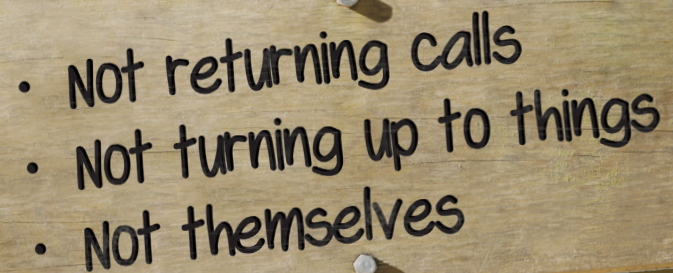 • Not returning calls
• Not turning up to things
• Not themselves